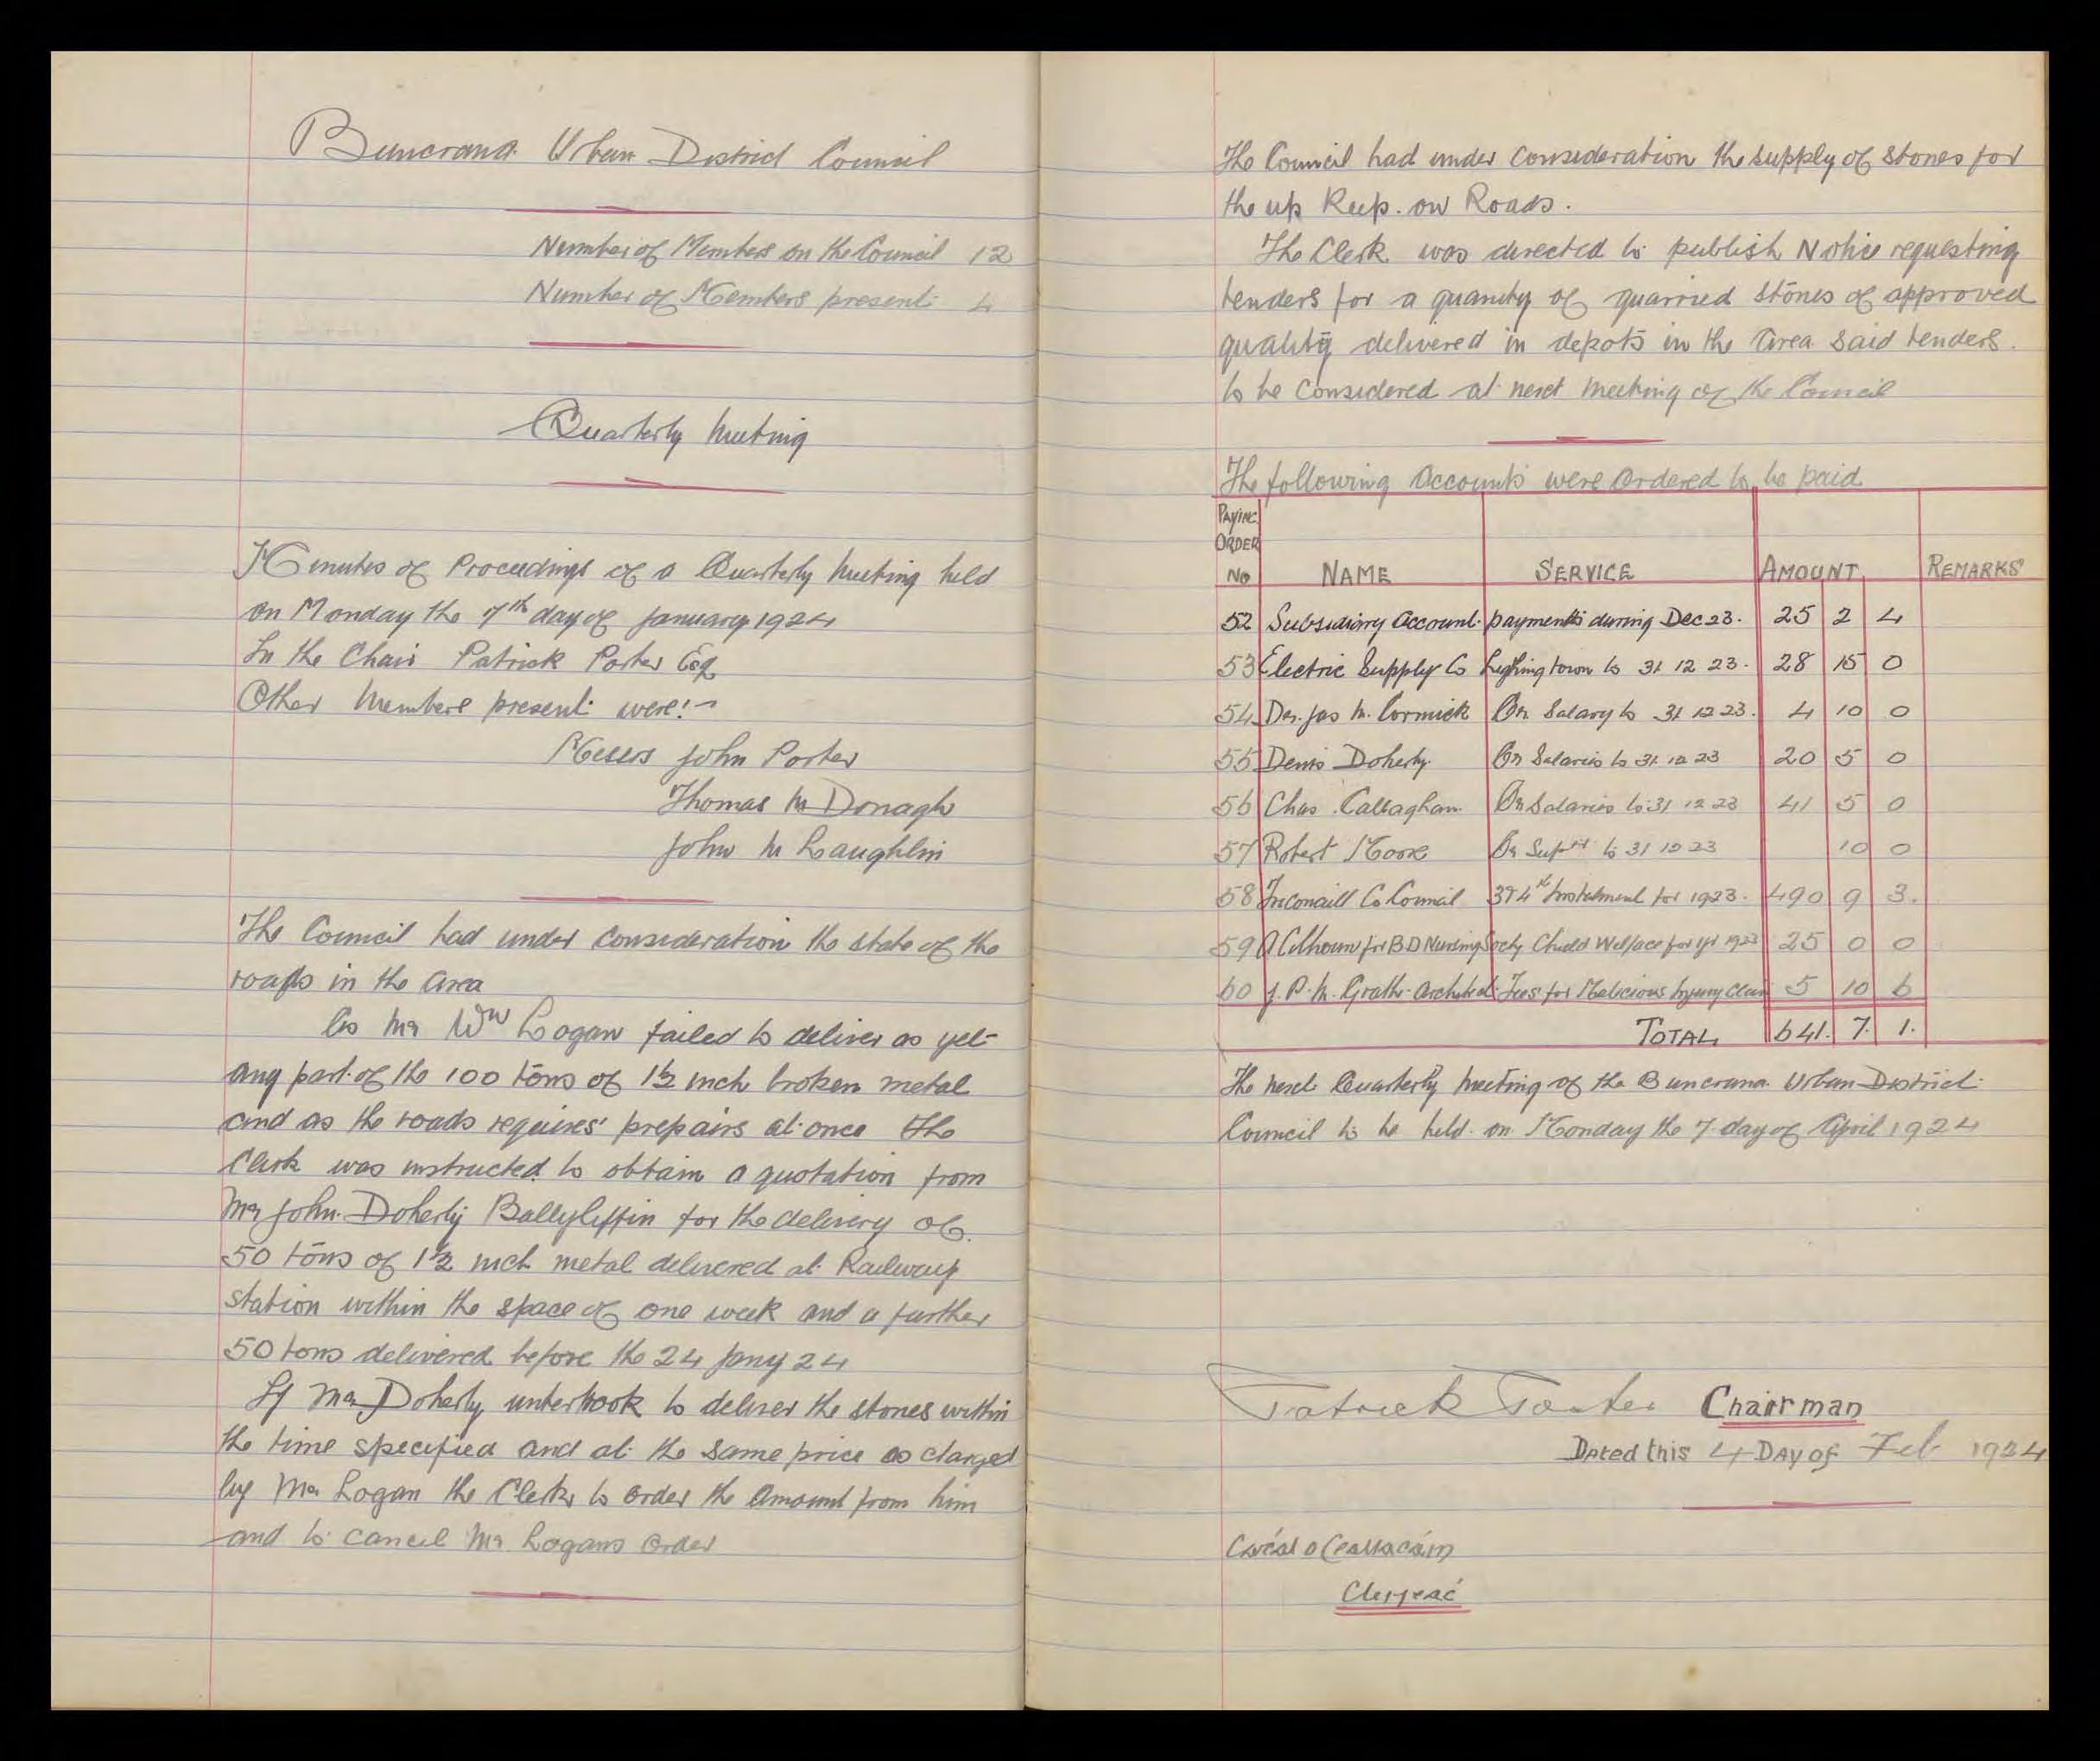 Buncrana Urban District Council
Number of Members on the Council 12
Number of Members present 4
Quarterly Meeting
Minutes of Proceedings of a Quarterly Meeting held
on Monday the 7th day of January 1924
In the Chair Patrick Porter Esq
Other Members present were:-
Messrs John Porter
Thomas Mc Donagh
John Mc Laughlin
The Council had under consideration the state of the
roads in the area
As Mr Wm Logan failed to deliver as yet
any part of the 100 tons of 1½ inch broken metal
and as the roads requires prepairs at once the
Clerk was instructed to obtain a quotation from
Mr John Doherty Ballyliffin for the delivery of
50 tons of 1½ inch metal delivered at Railway
station within the space of one week and a further
50 tons delivered before the 24 Jany 24
If Mr Doherty undertook to deliver the stones within
the time specified and at the same price as charged
by Mr Logan the Clerk to order the amount from him
and to cancel Mr Logans order
The Council had under consideration the supply of stones for
the up Keep on Roads.
The Clerk was directed to publish Notice requesting
tenders for a quantity of quarried stones of approved
quality delivered in depots in the Area said tenders
to be considered at next meeting of the Council
The following Accounts were ordered to be paid
PAYING
ORDER
No NAME SERVICE AMOUNT REMARKS
52 Subsidiary Account payments during Dec 23. 25 2 4
53 Electric Supply Co Lighting town to 31 12 23. 28 15 0
54 Dr. Jas Mc Cormick On Salary to 31 12 23. 4 10 0
55 Denis Doherty On Salaries to 31 12 23 20 5 0
56 Chas Callaghan On Salaries to 31 12 23 41 5 0
57 Robert Moore On Supt to 31 12 23 10 0
58 Tirconaill Co Council 3 & 4th Instalment for 1923. 490 9 3.
59 A Colhoun for B D Nursing Socty Child Welfare for yr 1923 25 0 0
60 J. P. Mc Grath Architect Fees for Malicious Injury Claim 5 10 6
TOTAL 641. 7. 1.
The next Quarterly Meeting of the Buncrana Urban District
Council to be held on Monday the 7 day of April 1924
Patrick Porter Chairman
Dated this 4 DAY of Feb 1924
Caṫal O Ceallacáin
Cleireaċ